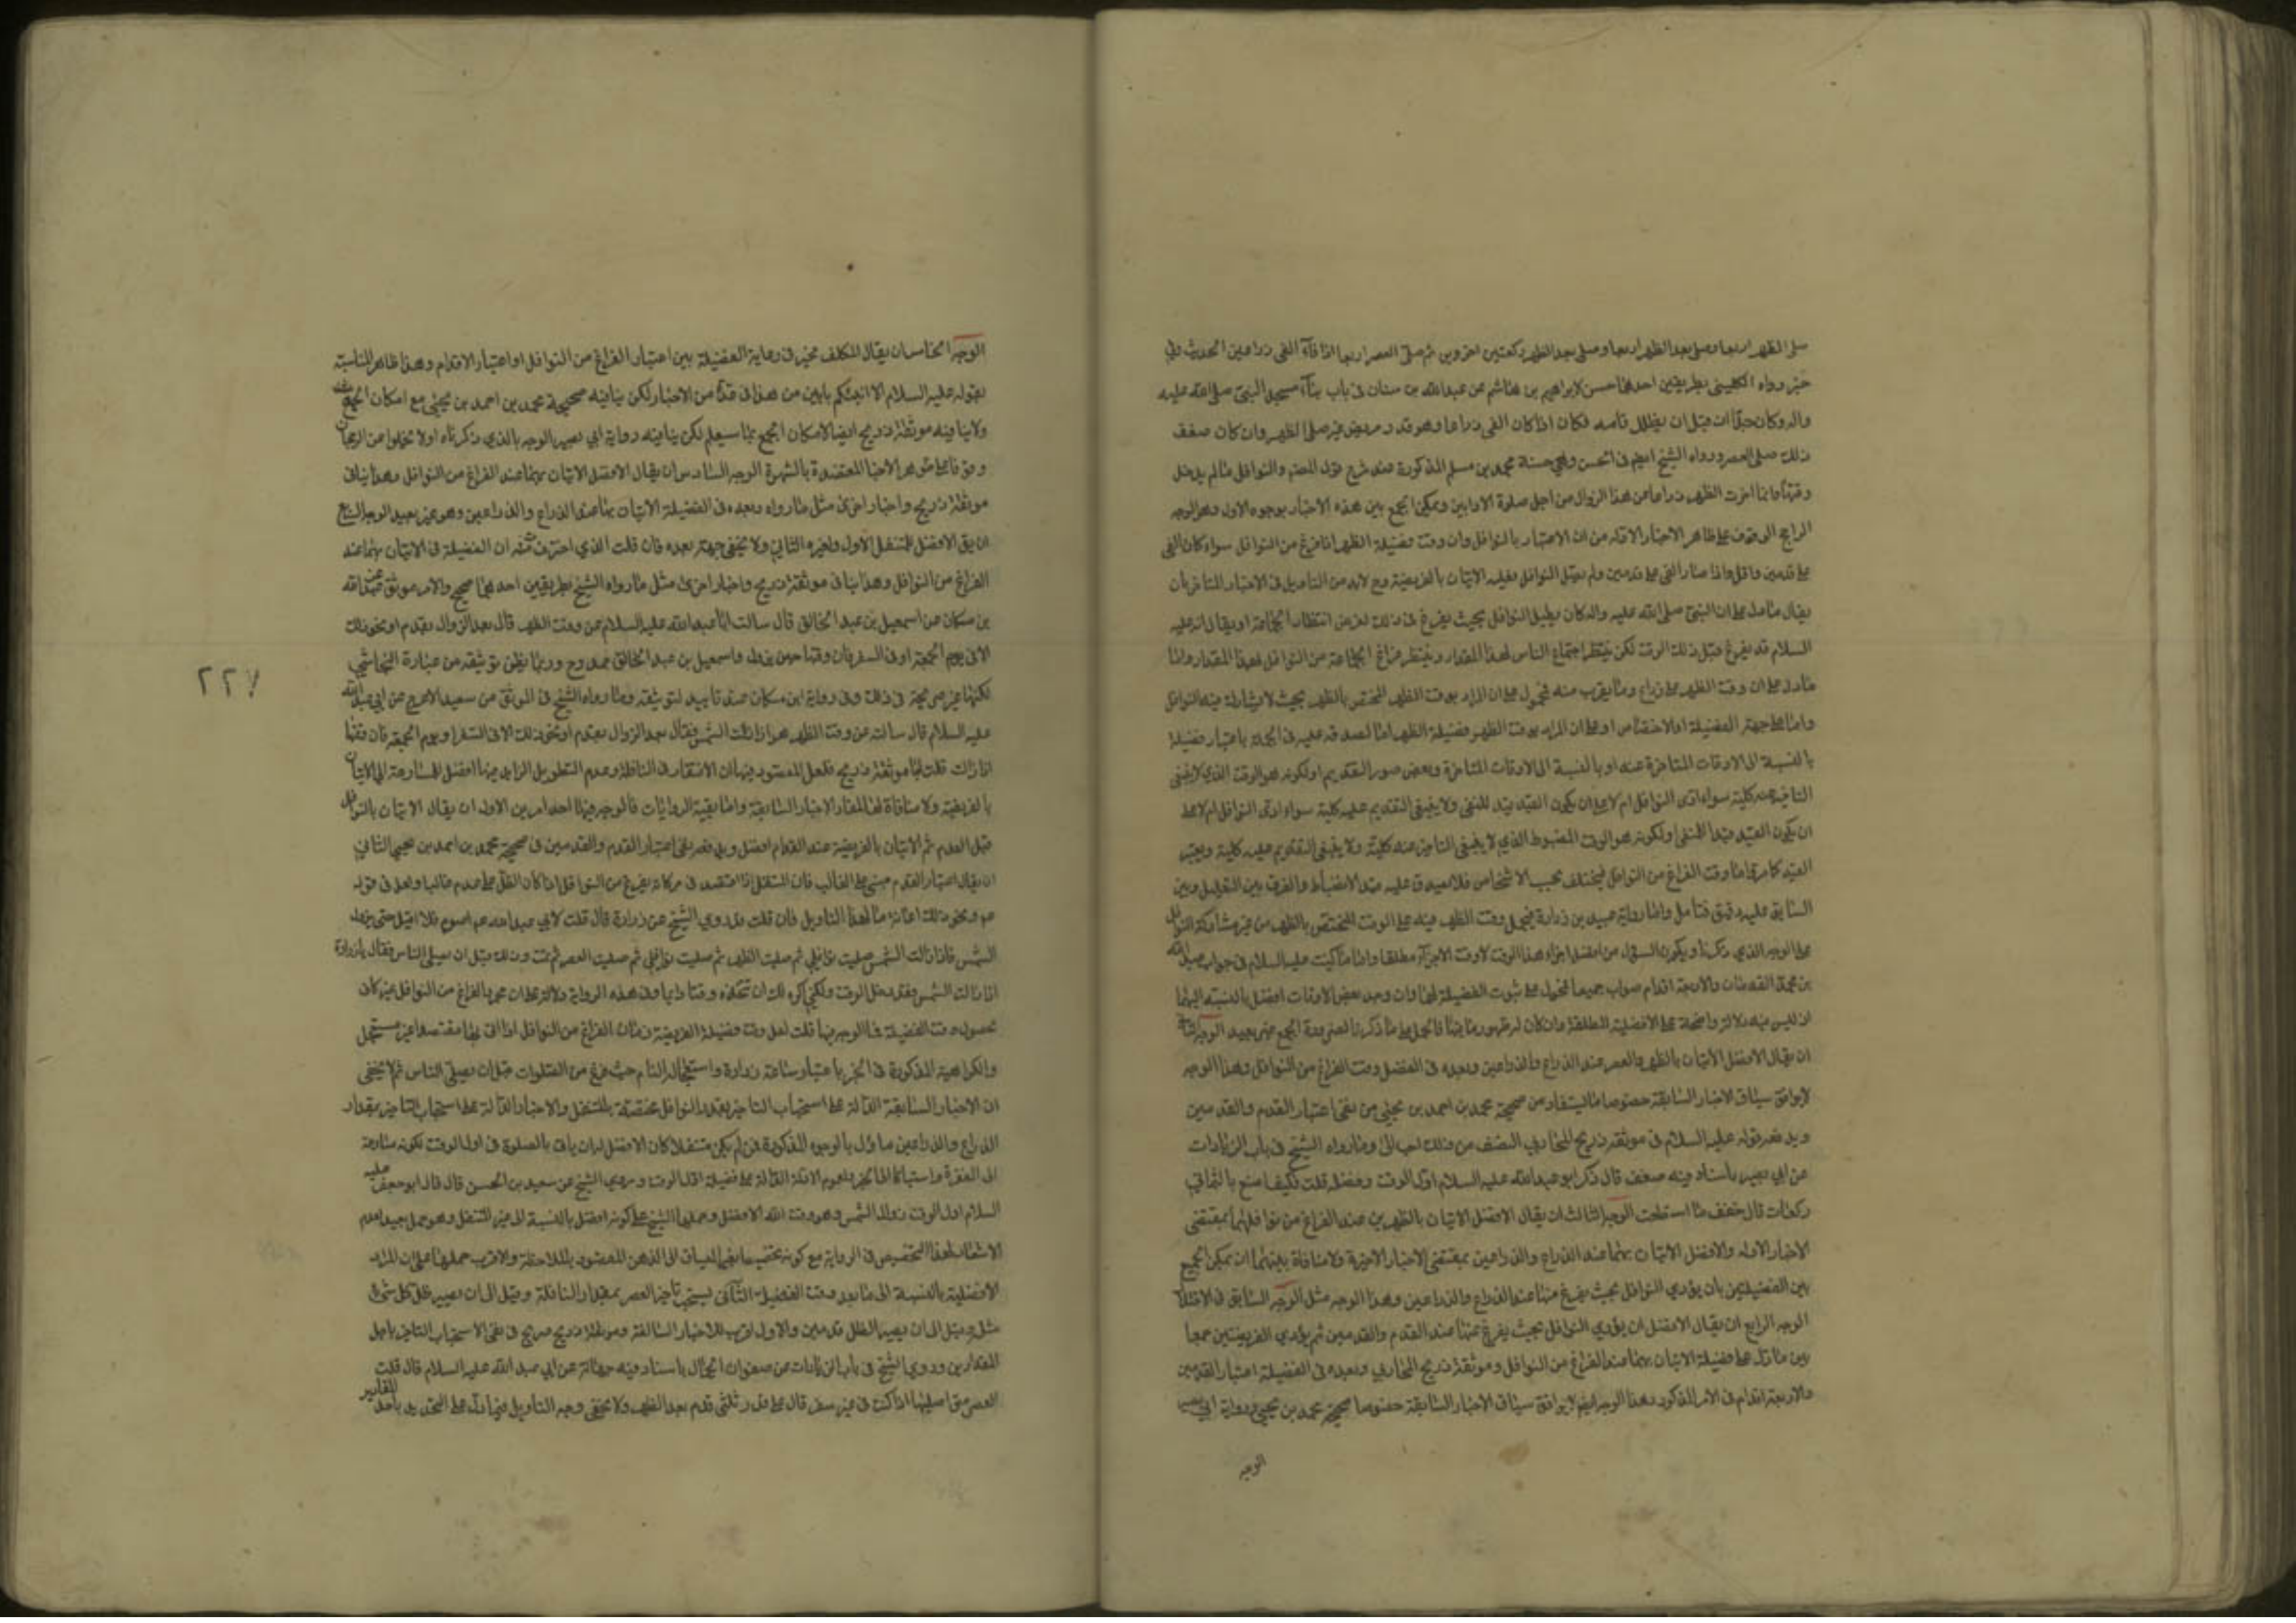 صلى الظهر اربعا وصلى بعد الظهر ركعتين اخروين ثم صلى العصر اربعا اذا فاء الفئ ذراعين الحديث وفي
خبر رواه الكليني بطريقين احدهما حسن لابراهيم بن هاشم عن عبدالله بن سنان في باب بناء مسجد النبي صلى الله عليه
واله وكان جداره قبل ان يظلل قامه فكان اذا كان الفئ ذراعا وهو قدر مربض عنز صلى الظهر وان كان ضعف
ذلك صلى العصر ورواه الشيخ ايضا في الحسن وفي حسنة محمد بن مسلم المذكورة عند شرح قول المصنف والنوافل مالم يدخل
وقتها وانما اخرت الظهر ذراعا من عند الزوال من اجل صلوة الاوابين ويمكن الجمع بين هذه الاخبار بوجوه الاول وهو الوجه
الراجح الوقوف على ظاهر الاخبار الاوله من ان الاعتبار بالنوافل وان وقت فضيلة الظهر اذا فرغ من النوافل سواء كان الفئ
على قدمين واقل واذا صار الفئ على قدمين ولم يصل النوافل فعليه الاتيان بالفريضة وح لابد من التاويل في الاخبار المتاخر بان
يقال مادل على ان النبي صلى الله عليه واله كان يطيل النوافل بحيث يفرغ في ذلك لغرض انتظار الجماعة او يقال انه عليه
السلام قد يفرغ قبل ذلك الوقت لكن ينتظر اجتماع الناس لهذا المقدار وينتظر فراغ الجماعة من النوافل لهذا المقدار واما
مادل على ان وقت الظهر على ذراع وما يقرب منه فمحمول على ان المراد بوقت الظهر المختص بالظهر بحيث لا يشاركه فيه النوافل
واما على جهة الفضيلة او الاختصاص او على ان المراد بوقت الظهر فضيلة الظهر اما لصدقه عليه في الجملة باعتبار فضيلة
بالنسبة الى الاوقات المتاخرة عنه او بالنسبة الى الاوقات المتاخرة وبعض صور التقديم او لكونه هو الوقت الذي لا ينبغي
التاخير عنه كلية سواء ادى النوافل ام لا على ان يكون القيد قيد للنفي ولا ينبغي التقديم عليه كلية سواء ادى النوافل ام لا على
ان يكون القيد قيدا للمنفي او لكونه هو الوقت المضبوط الذي لا ينبغي التاخير عنه كلية ولا ينبغي التقديم عليه كلية ويعتبر
القيد كما مر واما وقت الفراغ من النوافل فيختلف بحسب الاشخاص فلا يصدق عليه قيد الانضباط والفرق بين التعليل وبين
السابق عليه دقيق فتامل واما رواية عبيد بن زرارة فيحمل وقت الظهر فيه على الوقت المختص بالظهر من غير مشاركة النوافل
على الوجه الذي ذكرنا ويكون السؤال من افضل اجزاء هذا الوقت لا وقت الاجزاء مطلقا واما ما كتب عليه السلام في جواب عبدالله
بن محمد القدمان والاربعة اقدام صواب جميعا فمحول على ثبوت الفضيلة لهما وان وجد بعض الاوقات افضل بالنسبة اليهما
اذ ليس فيه دلالة واضحة على الافضلية المطلقة وان كان له ظهور ما فيها فالحمل على ما ذكرنا لضرورة الجمع غير بعيد الوجه الثاني
ان يقال الافضل الاتيان بالظهر والعصر عند الذراع والذراعين وبعده في الفضل وقت الفراغ من النوافل وهذا الوجه
لا يوافق سياق الاخبار السابقة خصوصا ما يستفاد من صحيحة محمد بن احمد بن يحيى من نفي اعتبار القدم والقدمين
ويدفعه قوله عليه السلام في موثقه ذريح المحاربي النصف من ذلك احب الي وما رواه الشيخ في باب الزيادات
عن ابي بصير باسناد فيه ضعف قال ذكر ابو عبدالله عليه السلام اول الوقت وفضله قلت فكيف اصنع بالثماني
ركعات قال خفف ما استطعت الوجه الثالث ان يقال الافضل الاتيان بالظهرين عند الفراغ من نوافلهما بمقتضى
الاخبار الاوله والافضل الاتيان بهما عند الذراع والذراعين بمقتضى الاخبار الاخيرة ولا منافاة بينهما ان يمكن الجمع
بين الفضيلتين بان يؤدي النوافل بحيث يفرغ منها عند الذراع والذراعين وهذا الوجه مثل الوجه السابق في الاختلال
الوجه الرابع ان يقال الافضل ان يؤدي النوافل بحيث يفرغ عنها عند القدم والقدمين ثم يؤدي الفريضتين جمعا
بين مادل على فضيلة الاتيان بهما عند الفراغ من النوافل وموثقة ذريح المحاربي وبعده في الفضيلة اعتبار القدمين
والاربعة اقدام في الامر المذكور وهذا الوجه ايضا لا يوافق سياق الاخبار السابقة خصوصا صحيحة محمد بن يحيى ورواية ابي بصير
الوجه
الوجه الخامس ان يقال المكلف مخير في رعاية الفضيلة بين اعتبار الفراغ من النوافل او اعتبار الاقدام وهذا ظاهر المناسبة
بقوله عليه السلام الا انبئكم بابين من هذا في عدة من الاخبار لكن ينافيه صحيحة محمد بن احمد بن يحيى مع امكان الجمع
ولا ينافيه موثقة ذريح ايضا لامكان الجمع بما سيعلم لكن ينافيه رواية ابي بصير الوجه بالذي ذكرناه اولا لا يخلوا من الرجحان
وقوفا على ظواهر الاخبار المعتضدة بالشهرة الوجه السادس ان يقال الافضل الاتيان بهما عند الفراغ من النوافل وهذا ينافي
موثقة ذريح واخبار اخرى مثل ما رواه وبعده في الفضيلة الاتيان بهما عند الذراع والذراعين وهو غير بعيد الوجه السابع
ان يق الافضل للمتنفل الاول ولغيره الثاني ولا يخفى جهة بعده فان قلت الذي اخترت منه ان الفضيلة في الاتيان بهما عند
الفراغ من النوافل وهذا ينافي موثقة ذريح واخبار اخرى مثل ما رواه الشيخ بطريقين احدهما صحيح والاخر موثق عن عبدالله
بن مسكان عن اسمعيل بن عبد الخالق قال سالت ابا عبدالله عليه السلام عن وقت الظهر قال بعد الزوال بقدم او نحو ذلك
الا في يوم الجمعة او في السفر فان وقتها حين يزول واسمعيل بن عبد الخالق ممدوح وربما يظن توثيقه من عبارة النجاشي
لكنها غير صريحة في ذلك وفي رواية ابن مسكان عنه تاييد لتوثيقه وما رواه الشيخ في الموثق عن سعيد الاعرج عن ابي عبدالله
عليه السلام قال سالته عن وقت الظهر اهو اذا زالت الشمس فقال بعد الزوال بقدم او نحو ذلك الا في السفر او يوم الجمعة فان وقتها
اذا زالت قلت اما موثقة ذريح فلعل المقصود فيها ان الاقتصار في النافلة وعدم التطويل الزايد فيها افضل للمسارعة الى الاتيان
بالفريضة ولا منافاة لهذا المفاد الاخبار السابقة واما بقية الروايات فالوجه فيها احد امرين الاول ان يقال الاتيان بالنوافل
قبل القدم ثم الاتيان بالفريضة عند القدم افضل ويدفعه نفي اعتبار القدم والقدمين في صحيحة محمد بن احمد بن يحيى الثاني
ان يقال اعتبار القدم مبني على الغالب فان المتنفل اذا اقتصد في حركاته يفرغ من النوافل اذا كان الظل على قدم غالبا ولعل في قوله
عم ونحو ذلك اعانة ما لهذا التاويل فان قلت فقد روى الشيخ عن زرارة قال قلت لابي عبدالله عم اصوم فلا اقيل حتى تزول
الشمس فاذا زالت الشمس صليت نوافلي ثم صليت الظهر ثم صليت نوافلي ثم صليت العصر ثم نمت وذلك قبل ان يصلي الناس فقال يا زرارة
اذا زالت الشمس فقد دخل الوقت ولكني اكره لك ان تتخذه وقتا دايما وفي هذه الرواية دلالة على ان مجرد الفراغ من النوافل غير كاف
لحصول وقت الفضيلة فما الوجه فيها قلت لعل وقت فضيلة الفريضة زمان الفراغ من النوافل اذا اتى بها مقتصدا غير مستعجل
والكراهية المذكورة في الخبر باعتبار مسارعة زرارة واستعجاله التام حيث فرغ من الصلوات قبل ان يصلي الناس ثم لا يخفى
ان الاخبار السابقة الدالة على استحباب التاخير بقدر النوافل مختصة بالمتنفل والاخبار الدالة على استحباب التاخير بمقدار
الذراع والذراعين ماؤل بالوجوه المذكورة فمن لم يكن متنفلا كان الافضل له ان ياتي بالصلوة في اول الوقت لكونه مسارعة
الى المغفرة واستباقا الى الخير ولعموم الادلة الدالة على فضيلة اول الوقت وروى الشيخ عن سعيد بن الحسن قال قال ابو جعفر عليه
السلام اول الوقت زوال الشمس وهو وقت الله الافضل وحملها الشيخ على كونه افضل بالنسبة الى غير المتنفل وهو حمل بعيد لعدم
الاشعار لهذا التخصيص في الرواية مع كونه تخصيصا بغير المنساق الى الذهن المقصود بالملاحظة والاقرب حملها على ان المراد
الافضلية بالنسبة الى ما بعد وقت الفضيلة الثاني يستحب تاخير العصر بمقدار النافلة وقيل الى ان يصير ظل كل شئ
مثله وقيل الى ان يصير الظل قدمين والاول اقرب للاخبار السالفة وموثقة ذريح صريح في نفي الاستحباب التاخير باحد
المقدارين وروى الشيخ في باب الزيادات عن صفوان الجمال باسناد فيه جهالة عن ابي عبدالله عليه السلام قال قلت
العصر متى اصليها اذا كنت في غير سفر قال على قدر ثلثي قدم بعد الظهر ولا يخفى وجه التاويل فيما دل على التحديد باحد المقادير
٢٢٧